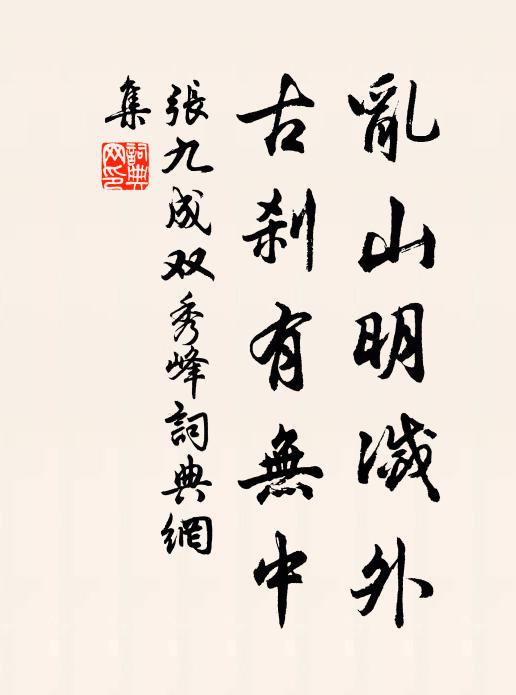 亂山明滅外
古刹有無中
張九成双秀峰詞典網
集
詞典網印